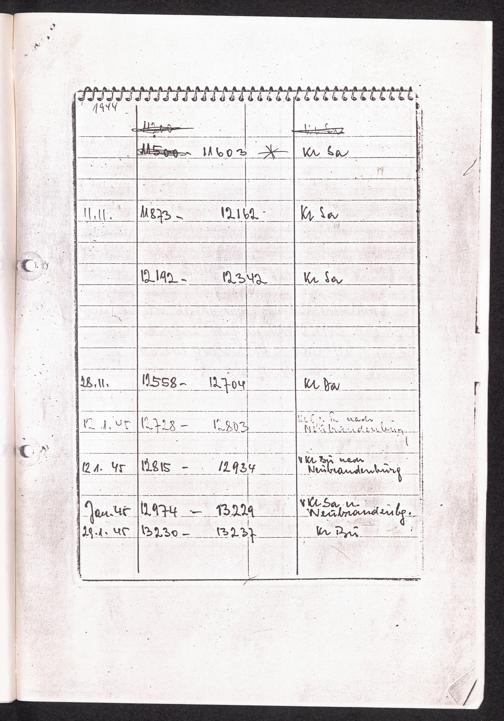 1944
11500 - 11603 * Kr Sa
11.11. 11873 - 12162 Kr Sa
12192 - 12342 Kr Sa
28.11. 12558 - 12704 Kr Sa
12.1.45 12728 - 12803 nach
Neubrandenburg
12.1.45 12815 - 12934 v Kr Bü nach
Neubrandenburg
Jan. 45 12974 - 13229 v Kr Sa n
Neubrandenbg.
29.1.45 13230 - 13237 Kr Bü